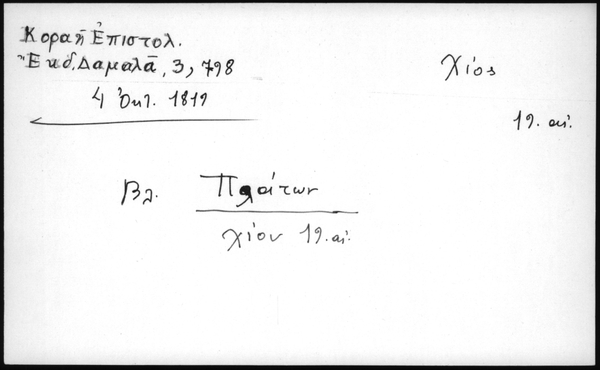 Κοραῆ Ἐπιστολ.
Ἔκδ. Δαμαλᾶ, 3, 798
4 Ὀκτ. 1819
Χίος
19. αἰ.
Βλ. Πλάτων
Χίου 19. αἰ.